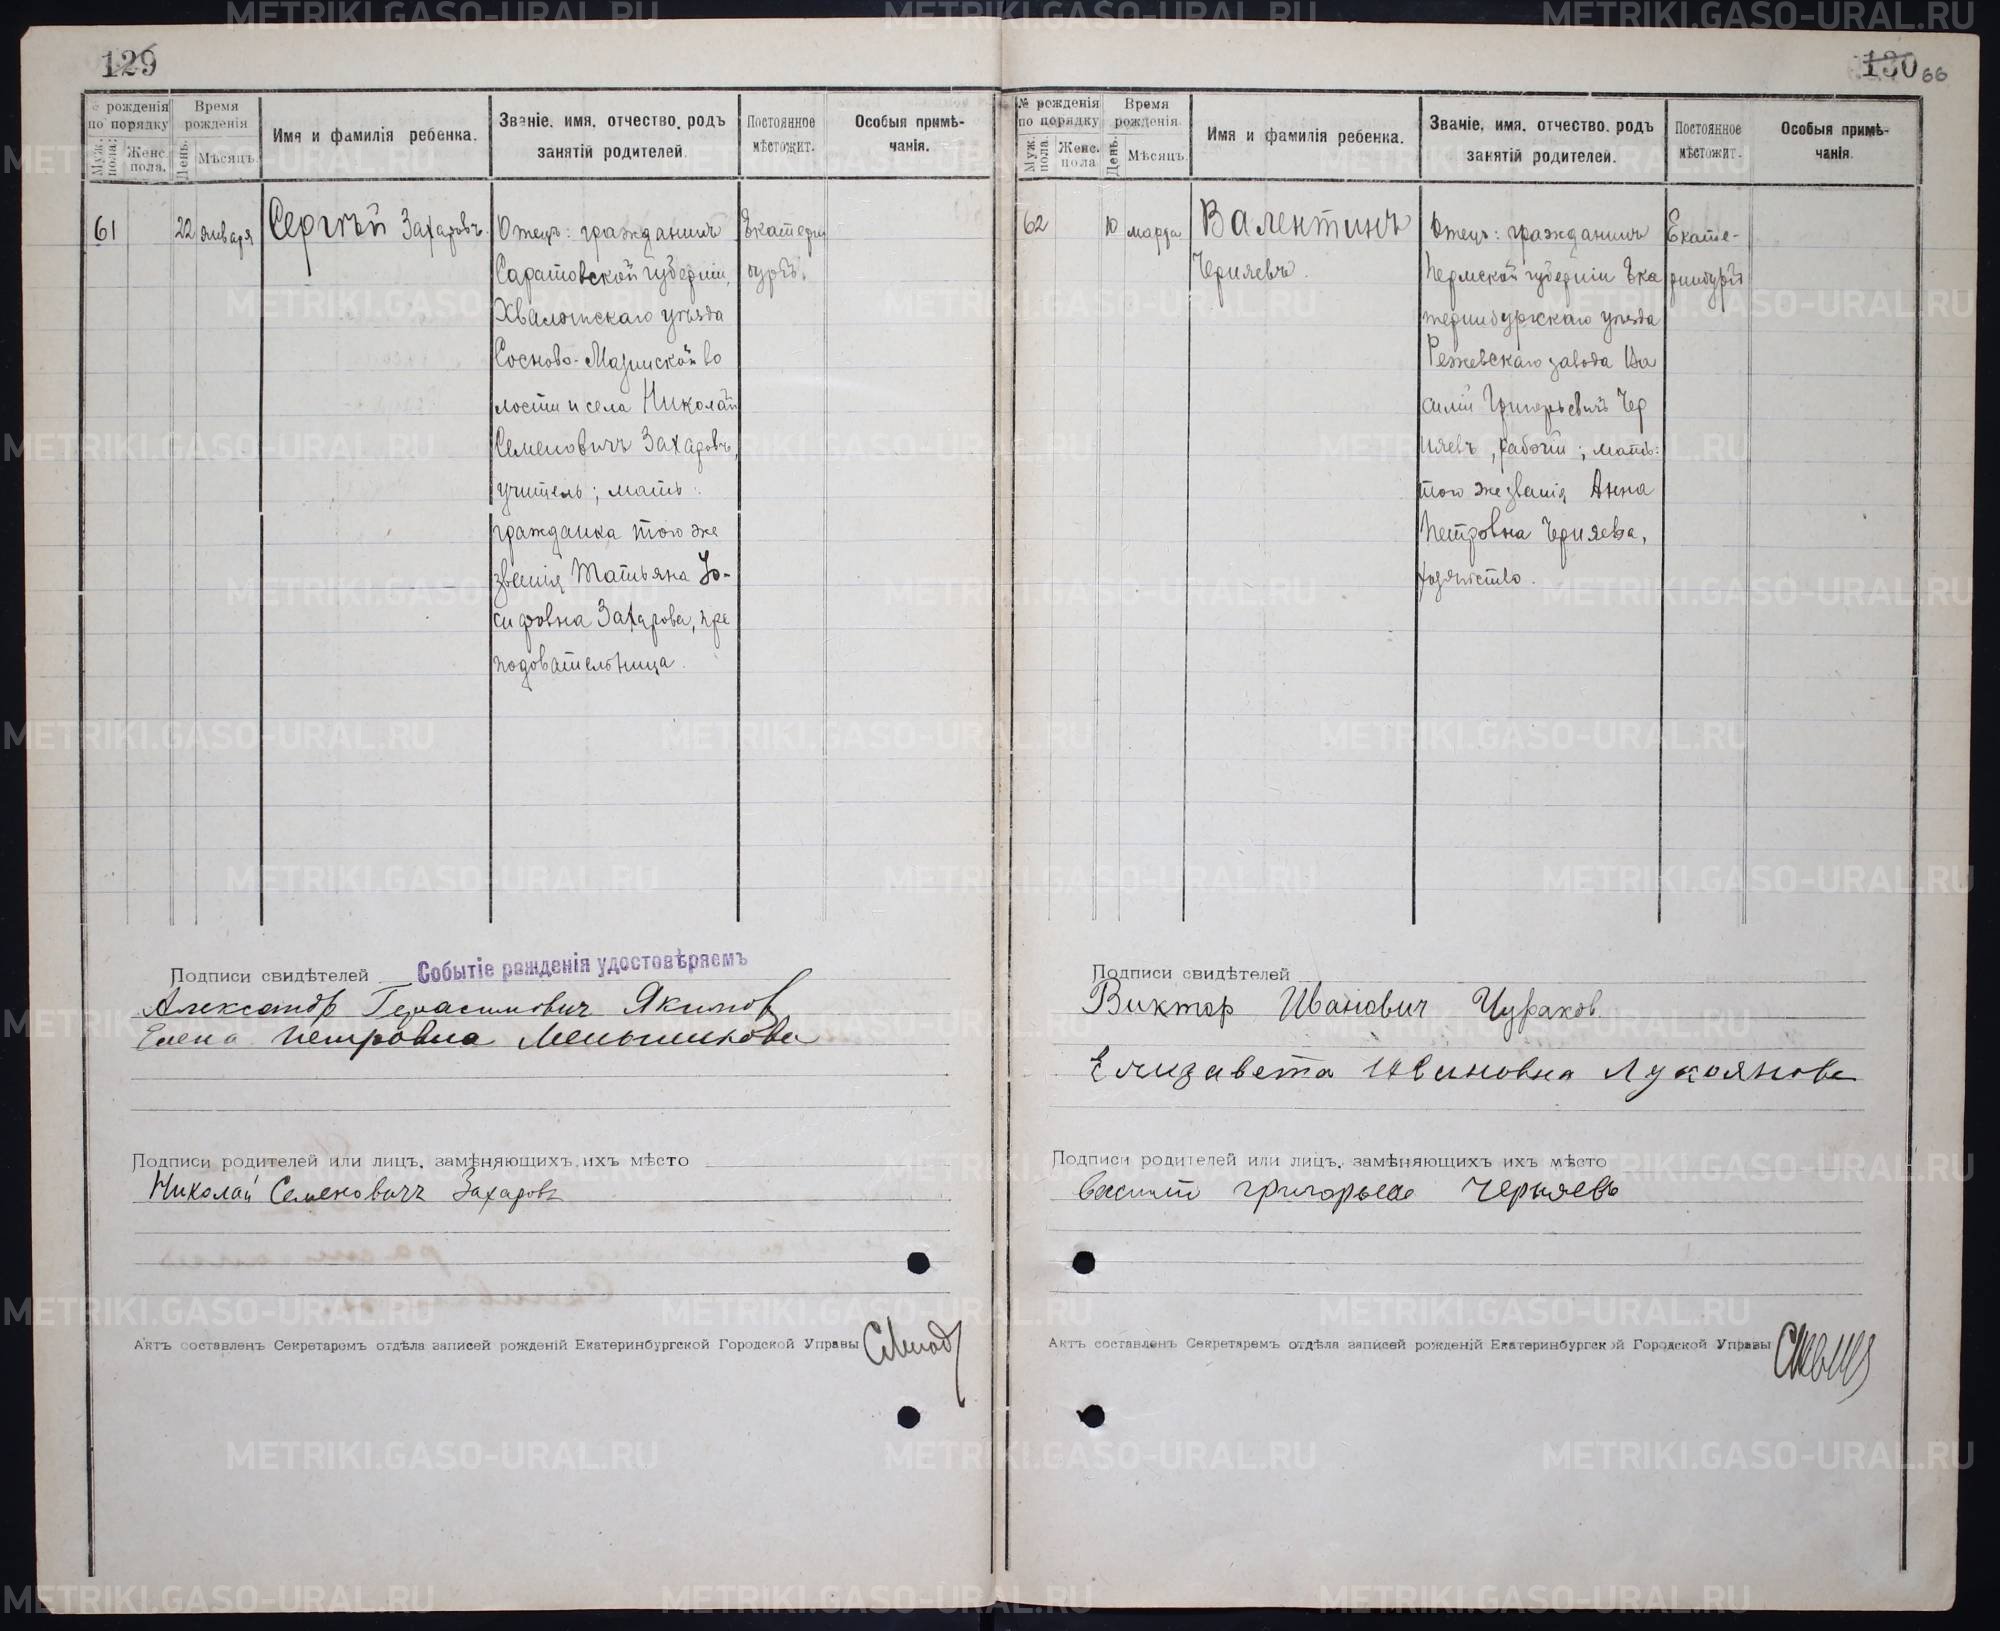 129
№ рожденія по порядку
Муж. пола.
Женс. пола.
Время рожденія
День.
Мѣсяцъ.
Имя и фамилія ребенка.
Званіе, имя, отчество, родъ
занятій родителей.
Постоянное
мѣстожит.
Особыя примѣ-
чанія.
61
22 января
Сергѣй Захаровъ.
Отецъ: гражданинъ
Саратовской губерніи,
Хвалынскаго уѣзда
Сосново-Мазинской во
лости и села Николай
Семеновичъ Захаровъ,
учитель; мать:
гражданка того же
званія Татьяна Іо-
сифовна Захарова, пре
подовательница.
Екатерин
бургъ.
Подписи свидѣтелей
Событіе рожденія удостовѣряемъ
Александр Герасимович Якимов
Елена Петровна Меньшикова
Подписи родителей или лицъ, замѣняющихъ ихъ мѣсто
Николай Семеновичъ Захаровъ
Актъ составленъ Секретаремъ отдѣла записей рожденій Екатеринбургской Городской Управы
130 66
№ рожденія
по порядку
Муж. пола.
Женс. пола
Время
рожденія
День.
Мѣсяцъ.
Имя и фамилія ребенка.
Званіе, имя, отчество, родъ
занятій родителей.
Постоянное
мѣстожит.
Особыя примѣ-
чанія.
62
10 марта
Валентинъ
Черняевъ.
Отецъ: гражданинъ
Пермской губерніи Ека
теринбургскаго уѣзда
Режевскаго завода Ва
силій Григорьевичъ Чер
няевъ, рабочій; мать:
того же званія Анна
Петровна Черняева,
хозяйство.
Екате-
ринбургъ
Подписи свидѣтелей
Виктор Иванович Чураков
Елизавета Ивановна Лукоянова
Подписи родителей или лицъ, замѣняющихъ ихъ мѣсто
Василий Григорьев Черняевъ
Актъ составленъ Секретаремъ отдѣла записей рожденій Екатеринбургской Городской Управы
METRIKI.GASO-URAL.RU